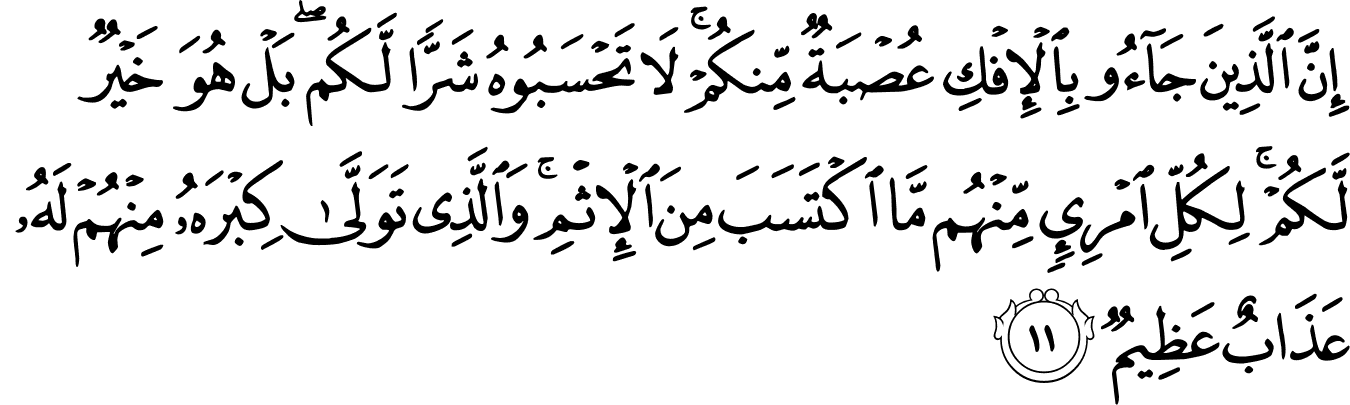 إِنَّ ٱلَّذِينَ جَآءُو بِٱلْإِفْكِ عُصْبَةٌ مِّنكُمْ ۚ لَا تَحْسَبُوهُ شَرًّا لَّكُم ۖ بَلْ هُوَ خَيْرٌ
لَّكُمْ ۚ لِكُلِّ ٱمْرِئٍ مِّنْهُم مَّا ٱكْتَسَبَ مِنَ ٱلْإِثْمِ ۚ وَٱلَّذِى تَوَلَّىٰ كِبْرَهُۥ مِنْهُمْ لَهُۥ
عَذَابٌ عَظِيمٌ ١١